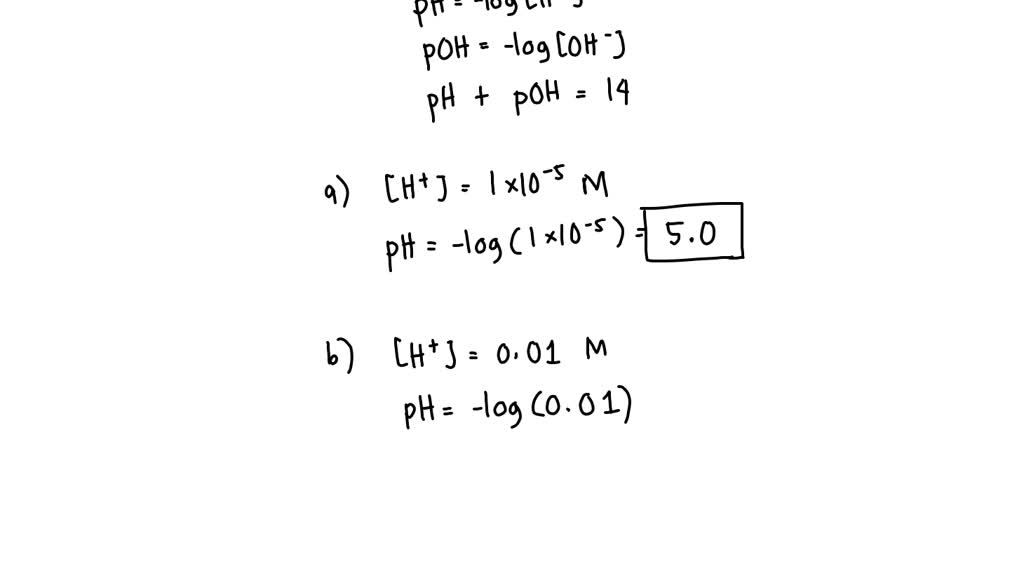 pH = -log[H⁺]
pOH = -log[OH⁻]
pH + pOH = 14
a) [H⁺] = 1×10⁻⁵ M
pH = -log(1×10⁻⁵) = 5.0
b) [H⁺] = 0.01 M
pH = -log(0.01)